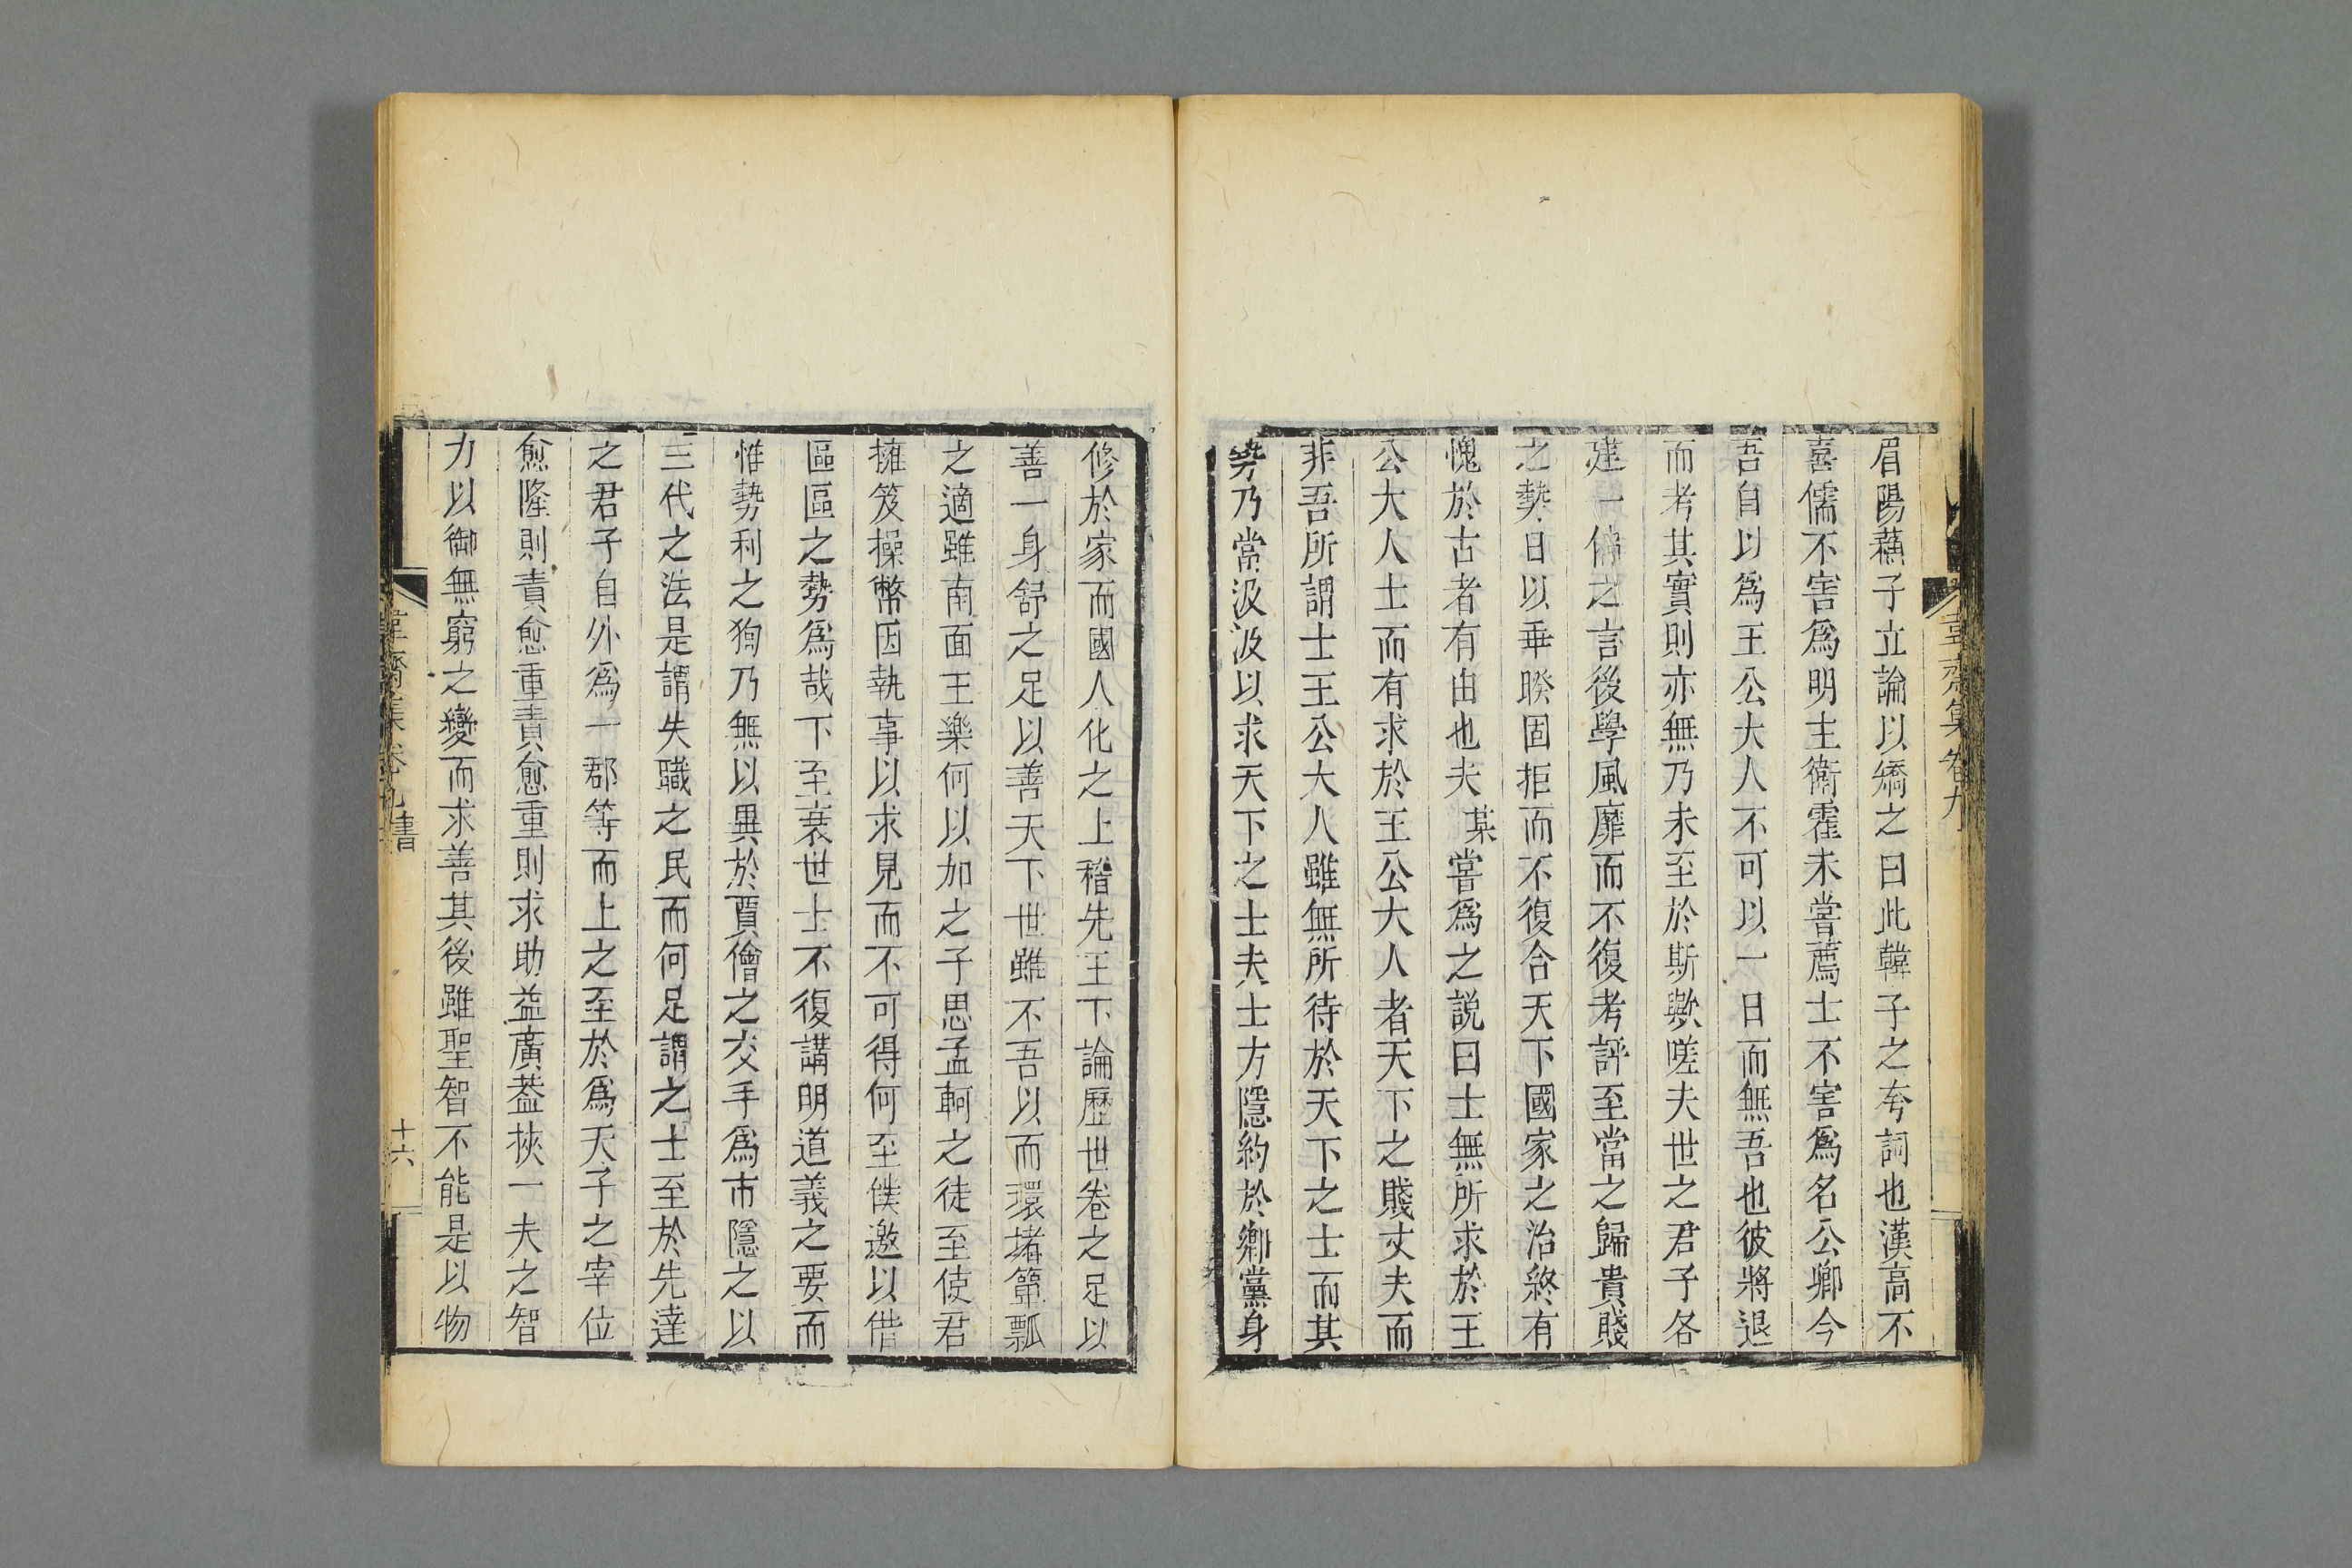 眉陽蘓子立論以矯之曰此韓子之夸詞也漢高不
喜儒不害爲明主衛霍未嘗薦士不害爲名公卿今
吾自以爲王公大人不可以一日而無吾也彼將退
而考其實則亦無乃未至於斯歟嗟夫世之君子各
建一偏之言後學風靡而不復考評至當之歸貴賤
之勢日以乖睽固拒而不復合天下國家之治終有
愧於古者有由也夫某嘗爲之説曰士無所求於王
公大人士而有求於王公大人者天下之賤丈夫而
非吾所謂士王公大人雖無所待於天下之士而其
勢乃當汲汲以求天下之士夫士方隱約於鄉黨身
修於家而國人化之上稽先王下論歷世卷之足以
善一身舒之足以善天下世雖不吾以而環堵簞瓢
之適雖南面王樂何以加之子思孟軻之徒至使君
擁笈操幣因執事以求見而不可得何至僕邀以借
區區之勢爲哉下至衰世士不復講明道義之要而
惟勢利之狥乃無以異於賈儈之交手爲市隱之以
三代之法是謂失職之民而何足謂之士至於先達
之君子自外爲一郡等而上之至於爲天子之宰位
愈隆則責愈重責愈重則求助益廣葢挾一夫之智
力以御無窮之變而求善其後雖聖智不能是以物
韋齋集卷九 書
十六